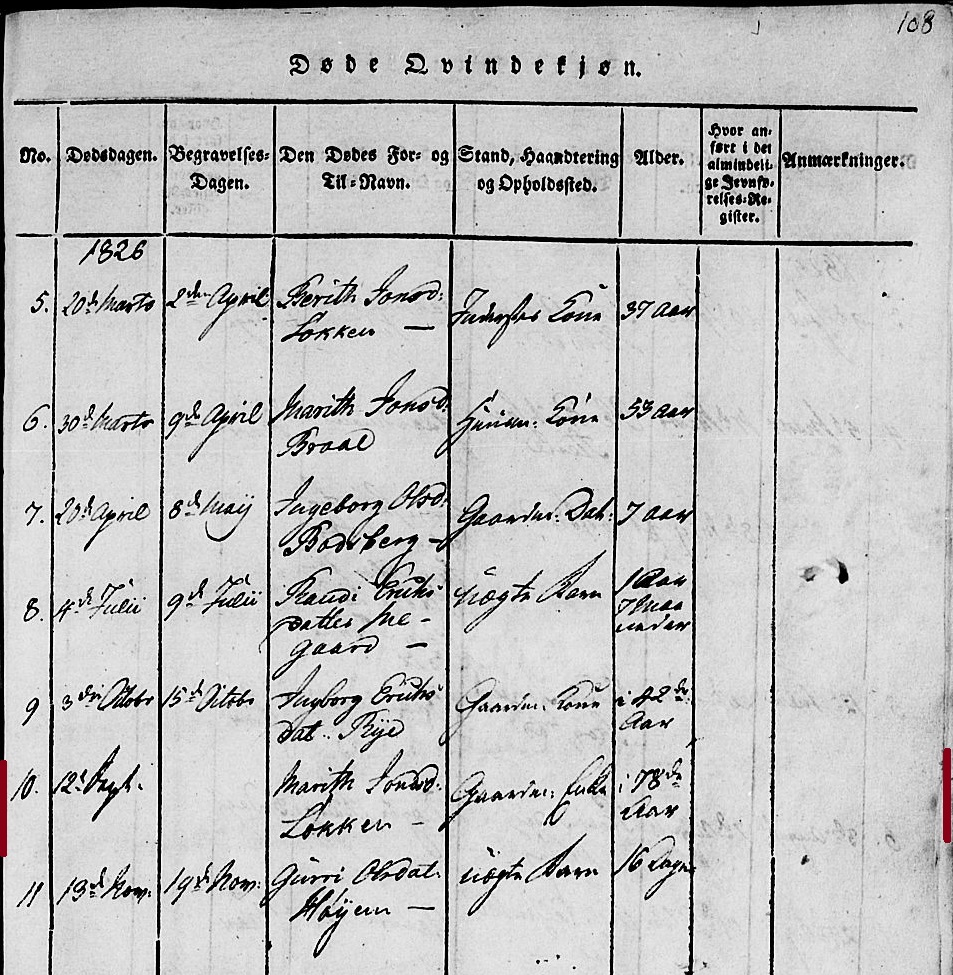 108
Døde Qvindekjøn.
No. Dødsdagen. Begravelses-Dagen. Den Dødes For- og Til-Navn. Stand, Haandtering og Opholdssted. Alder. Hvor anført i det almindelige Jevnførelses-Register. Anmærkninger.
1826
5. 20de Marts 2den April Berith Jonsd: 37 Aar
Løkken — Kone
6. 30de Marts 9de April Marith Jonsd: 53 Aar
Braal Huusm: Kone
7. 20de April 8de Maij Ingeborg Olsd: Gaardm: Dat: 7 Aar
Bodsberg —
8. 4de Julii 9de Julii Randi Erichs uægte Barn 1 Aar
datter Me- 7 Maa
gaard — neder
9 3die Octobr 15de Octobr Ingborg Erichs Gaardm: Kone i 42de
dat.. Rye Aar
10. 12te Sept. Marith Jonsd: Gaardm: Enke i 78de
Løkken — Aar
11 13de Nov. 19de Nov: Gurri Olsdat. uægte Barn 16 Dage
Høyem —